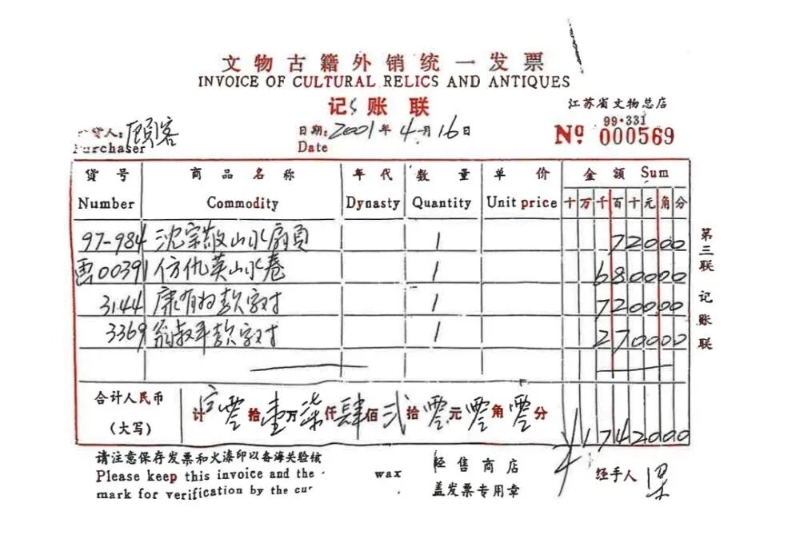 文物古籍外销统一发票
INVOICE OF CULTURAL RELICS AND ANTIQUES
记账联
江苏省文物总店
99·331
货人:顾客
Purchaser
日期:2001年4月16日
Date
Nº 000569
货号 商品名称 年代 数量 单价 金额 Sum
Number Commodity Dynasty Quantity Unit price 十万千百十元角分
97-984 沈宗敬山水扇页 1 72000
00391 仿仇英山水卷 1 680000
3144 康有为款字对 1 720000
3369 翁叔平款字对 1 270000
合计人民币
(大写)
计 零拾壹万柒仟肆佰贰拾零元零角零分
¥1742000
第三联 记账联
请注意保存发票和火漆印以备海关验核
Please keep this invoice and the wax
mark for verification by the cu
经售商店
盖发票专用章
经手人 梁